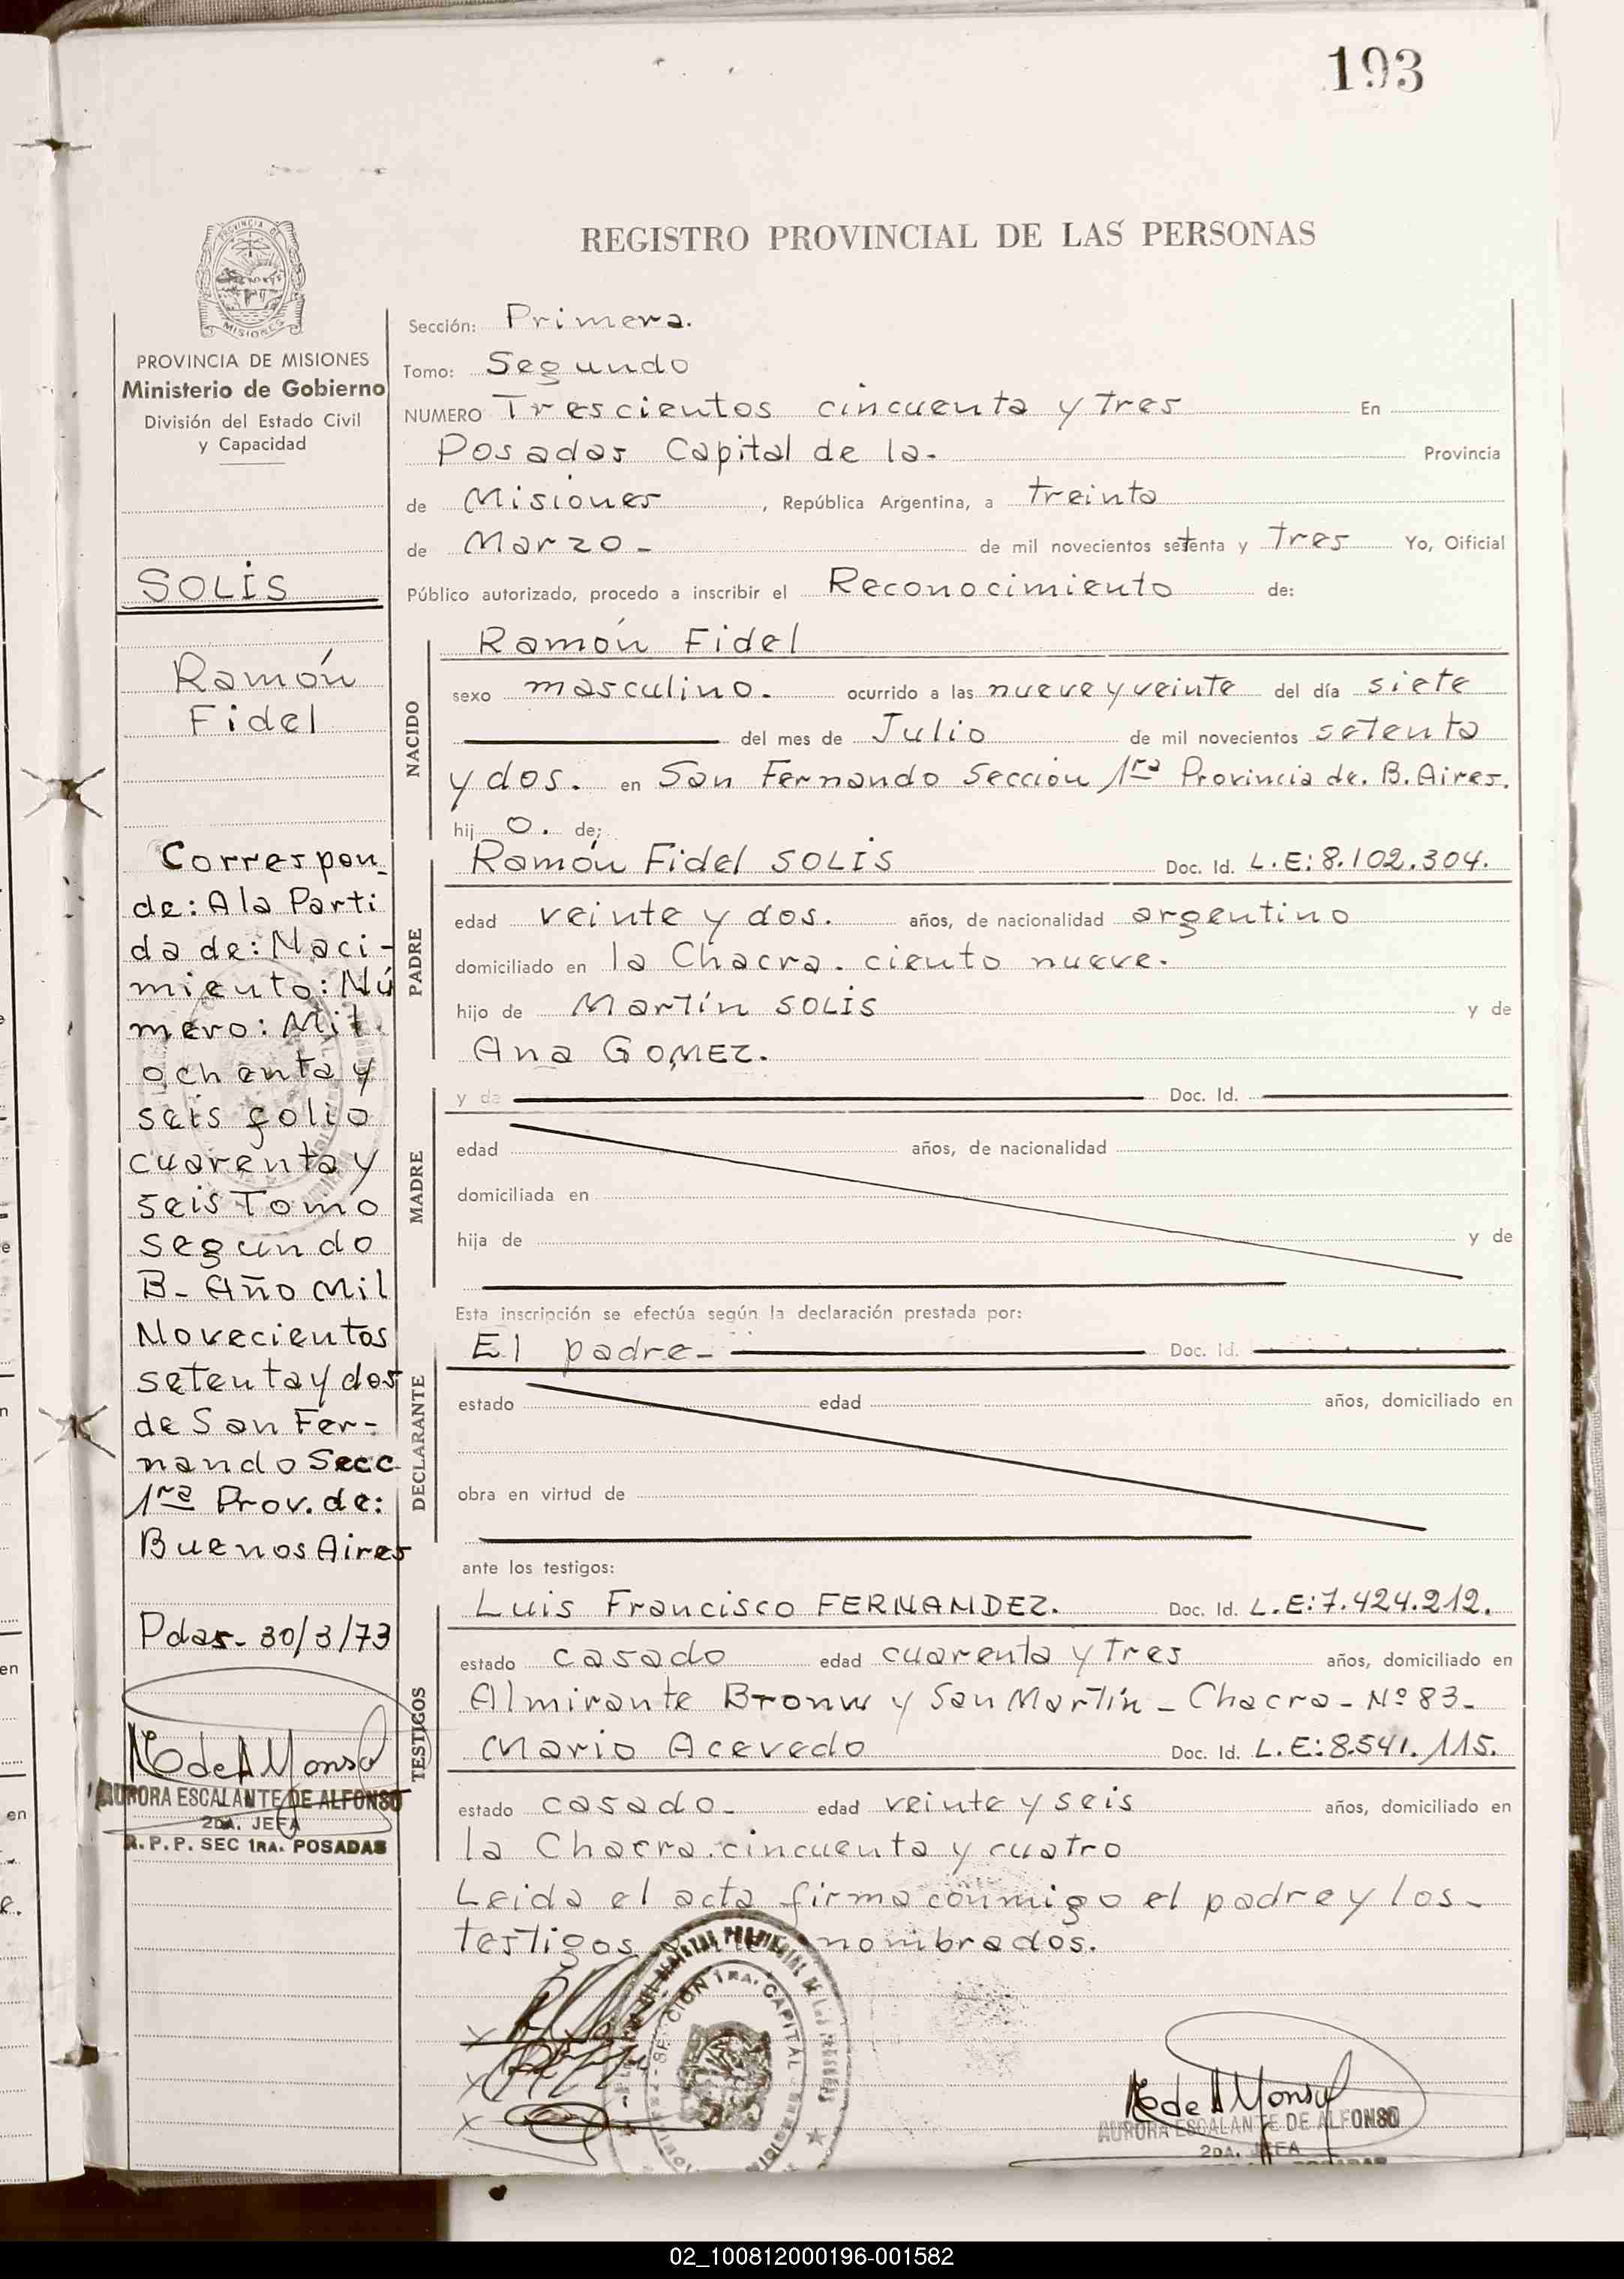 193
REGISTRO PROVINCIAL DE LAS PERSONAS
PROVINCIA DE
MISIONES
PROVINCIA DE MISIONES
Ministerio de Gobierno
División del Estado Civil
y Capacidad
SOLIS
Ramón
Fidel
Correspon_
de: A la Parti
da de: Naci-
miento: Nú
mero: Mil
ochenta y
seis folio
cuarenta y
seis Tomo
segundo
B- Año Mil
Novecientos
setenta y dos
de San Fer-
nando Secc
1ra Prov. de:
Buenos Aires
Pdas- 30/3/73
AURORA ESCALANTE DE ALFONSO
2DA. JEFA
R.P.P. SEC 1RA. POSADAS
Sección: Primera.
Tomo: Segundo
NUMERO Trescientos cincuenta y tres En
Posadas Capital de la- Provincia
de Misiones, República Argentina, a treinta
de Marzo- de mil novecientos setenta y tres Yo, Oificial
Público autorizado, procedo a inscribir el Reconocimiento de:
NACIDO
Ramón Fidel
sexo masculino. ocurrido a las nueve y veinte del día siete
del mes de Julio de mil novecientos setenta
y dos. en San Fernando Sección 1ra Provincia de. B. Aires.
hij o. de;
PADRE
Ramón Fidel SOLIS Doc. Id. L.E: 8.102.304.
edad veinte y dos. años, de nacionalidad argentino
domiciliado en la Chacra. ciento nueve.
hijo de Martín SOLIS y de
Ana GOMEZ.
MADRE
y de Doc. Id.
edad años, de nacionalidad
domiciliada en
hija de y de
Esta inscripción se efectúa según la declaración prestada por:
DECLARANTE
El padre- Doc. Id.
estado edad años, domiciliado en
obra en virtud de
ante los testigos:
TESTIGOS
Luis Francisco FERNANDEZ. Doc. Id. L.E: 7.424.212.
estado casado edad cuarenta y tres años, domiciliado en
Almirante Bronw y San Martín - Chacra - Nº 83-
Mario Acevedo Doc. Id. L.E: 8.541.115.
estado casado- edad veinte y seis años, domiciliado en
la Chacra. cincuenta y cuatro
Leida el acta firma conmigo el padre y los-
testigos nombrados.
SECCION 1RA. CAPITAL
AURORA ESCALANTE DE ALFONSO
2DA. JEFA
02_100812000196-001582